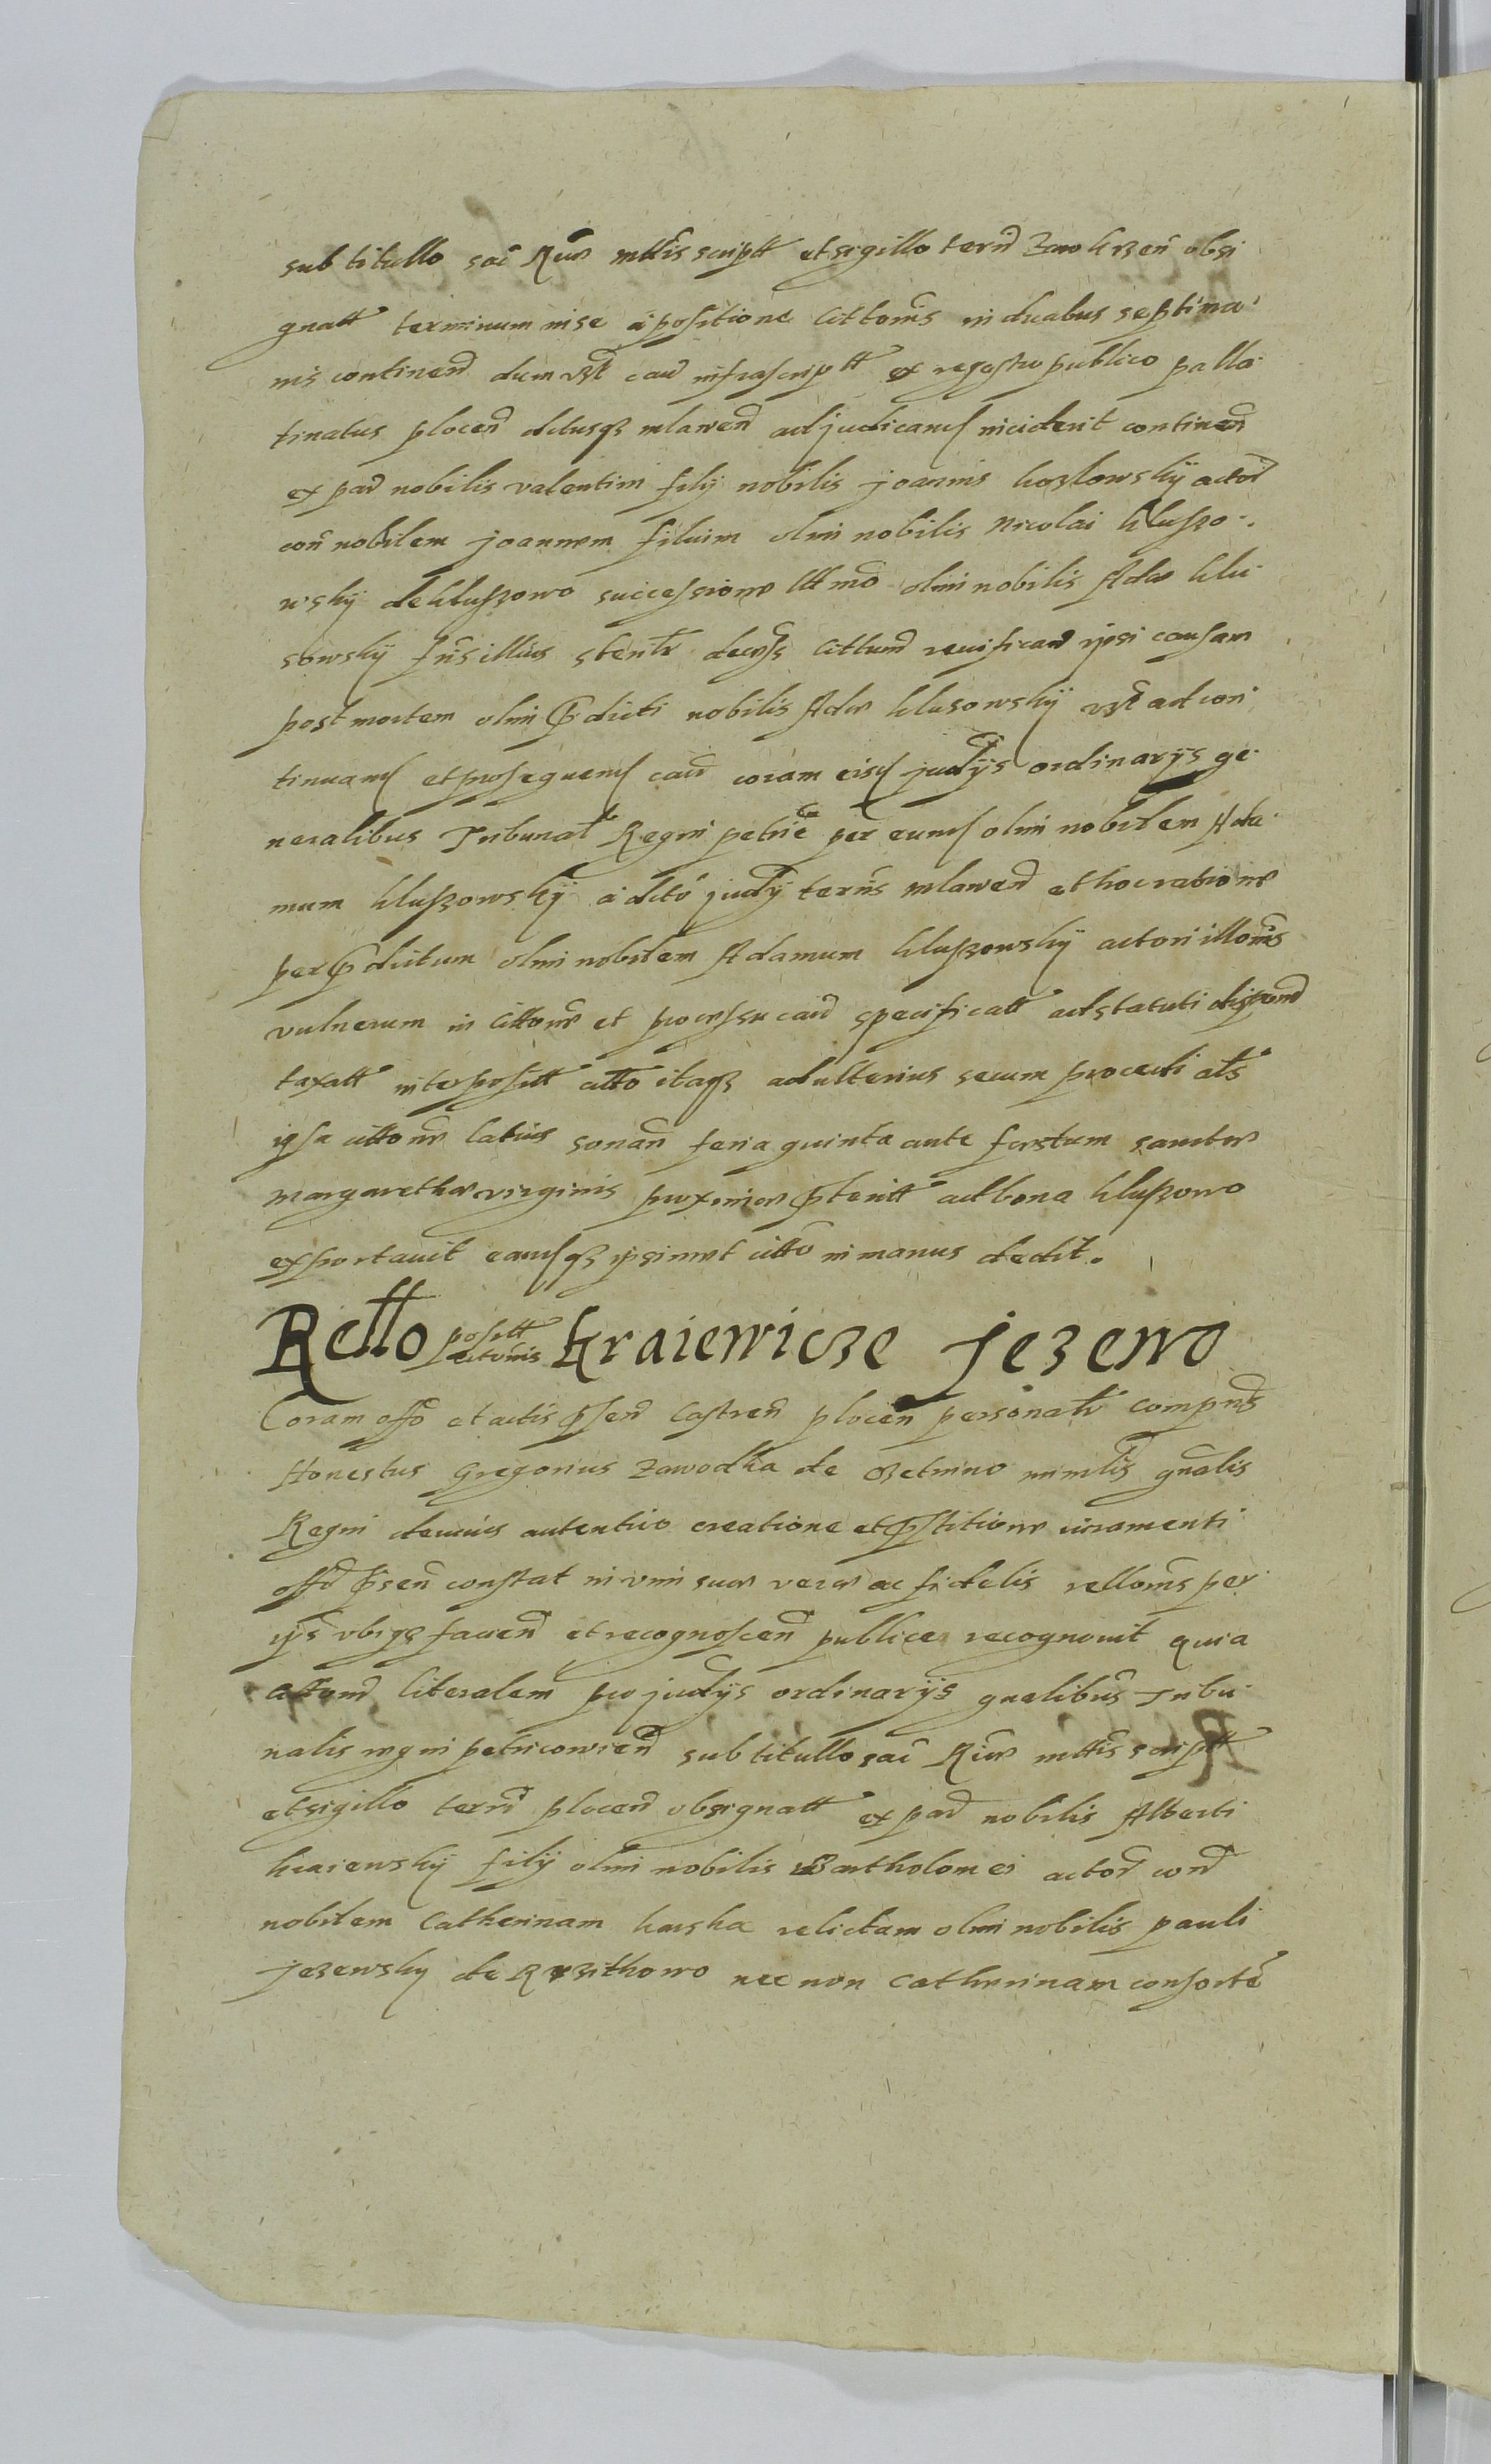 sub titullo sac Rem mttis script et sigillo tern Zawkrzen obsi
gnatt terminum in se a positione littonis in duabus septima
nis continen dum vt cau infrascriptt ex regestro publico palla
tinatus plocen dctusq mlawen adjudicand inciderit continen
ex par nobilis valentini filij nobilis joannis kozlowskij actor
con nobilem joannem filium olim nobilis Nicolai kluszo
wskij de kluszowo successione ltimo olim nobilis Adae klu
sowskij fris illius decess cittum reuificand ipsi causam
post mortem olim pdicti nobilis Adae klusowskij vt ad con
tinuand et prosequend cau coram eisd judijs ordinarijs ge
neralibus Tribunal Regni petric per eund olim nobilem Ada
mum kluszowskij a dcto judij ternis mlawen et hoc ratione
per pdictum olim nobilem Adamum kluszowskij actori illonis
vulnerum in cittone et processu cau specificatt ad statuti dispon
taxatt interpositt citto itaq ad ulterius secum procedi als
ipsa cittone latius sonan feria quinta ante festum sanctae
margarethae virginis proxime pteritt ad bona kluszowo
exportauit eandq ipsimet citto in manus dedit.
Rctto positt cittonis Kraiewicze Jezewo
Coram offo et actis psen Castren plocen personalr compns
Honestus Gregorius Zawodka de mimlis gnalis
Regni de cuius autentico creatione et pstitione iuramenti
offo psen constat in vim suae verae ac fidelis rellonis per
ips vbiqq facien et recognoscen publice recognouit quia
citton literalem pro judijs ordinarijs gnalibus Tribu
nalis regni petricowien sub titullo sac Riae mttis scriptt
et sigillo tern plocen obsignatt ex par nobilis Alberti
kraiewskij filij olim nobilis Bartholomei actor con
nobilem Catherinam kaska relictam olim nobilis pauli
jezewsky de nec non Catherinam consorte